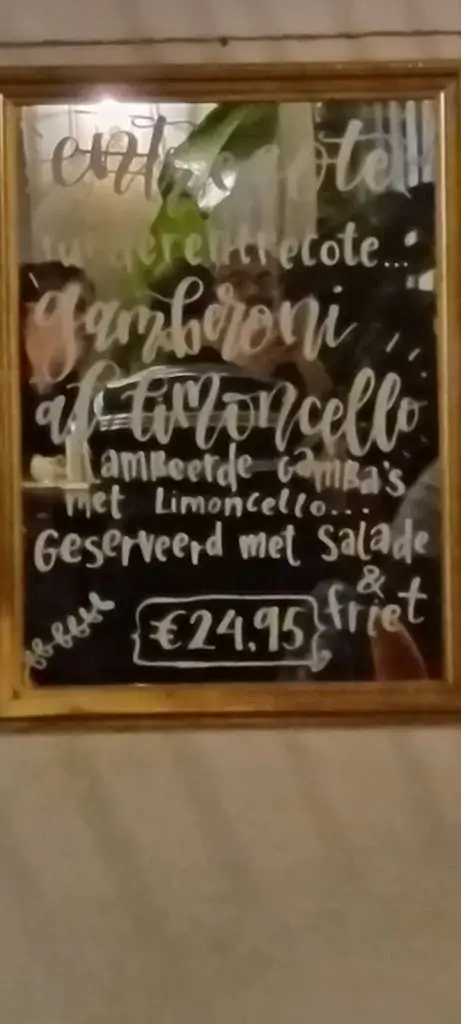 entrecote
runderentrecote...
gamberoni
al limoncello
Flambeerde Gamba's
met Limoncello...
Geserveerd met Salade
& friet
€24,95